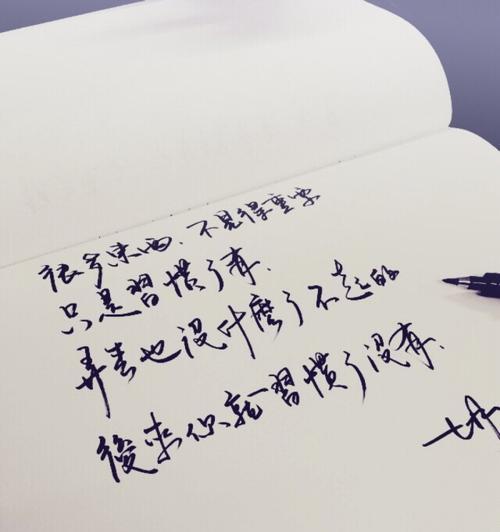 很多東西、不見得重要
只是習慣了有.
弄丢也没什麼了不起的
後來你就習慣了没有.